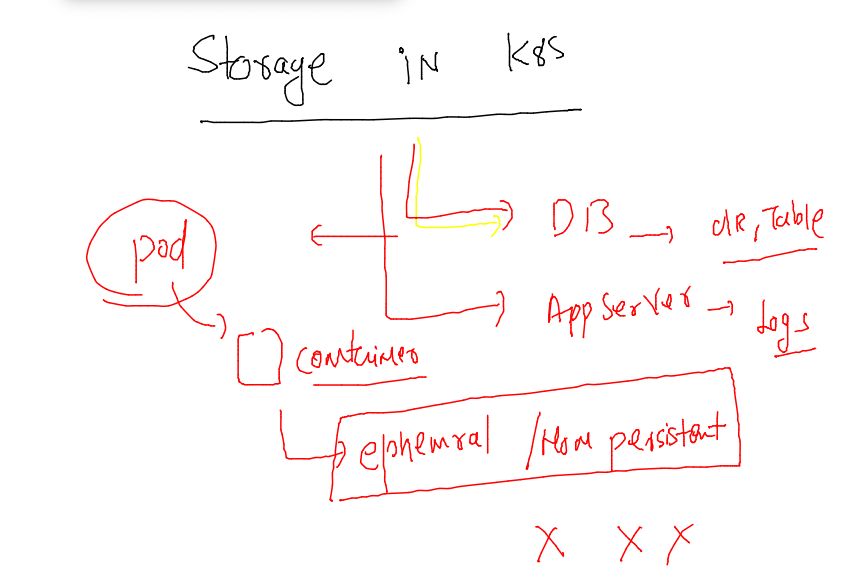 Storage in K8S
pod
DB → dR, Table
App Server → Logs
container
ephemral / Non persistent
X X X